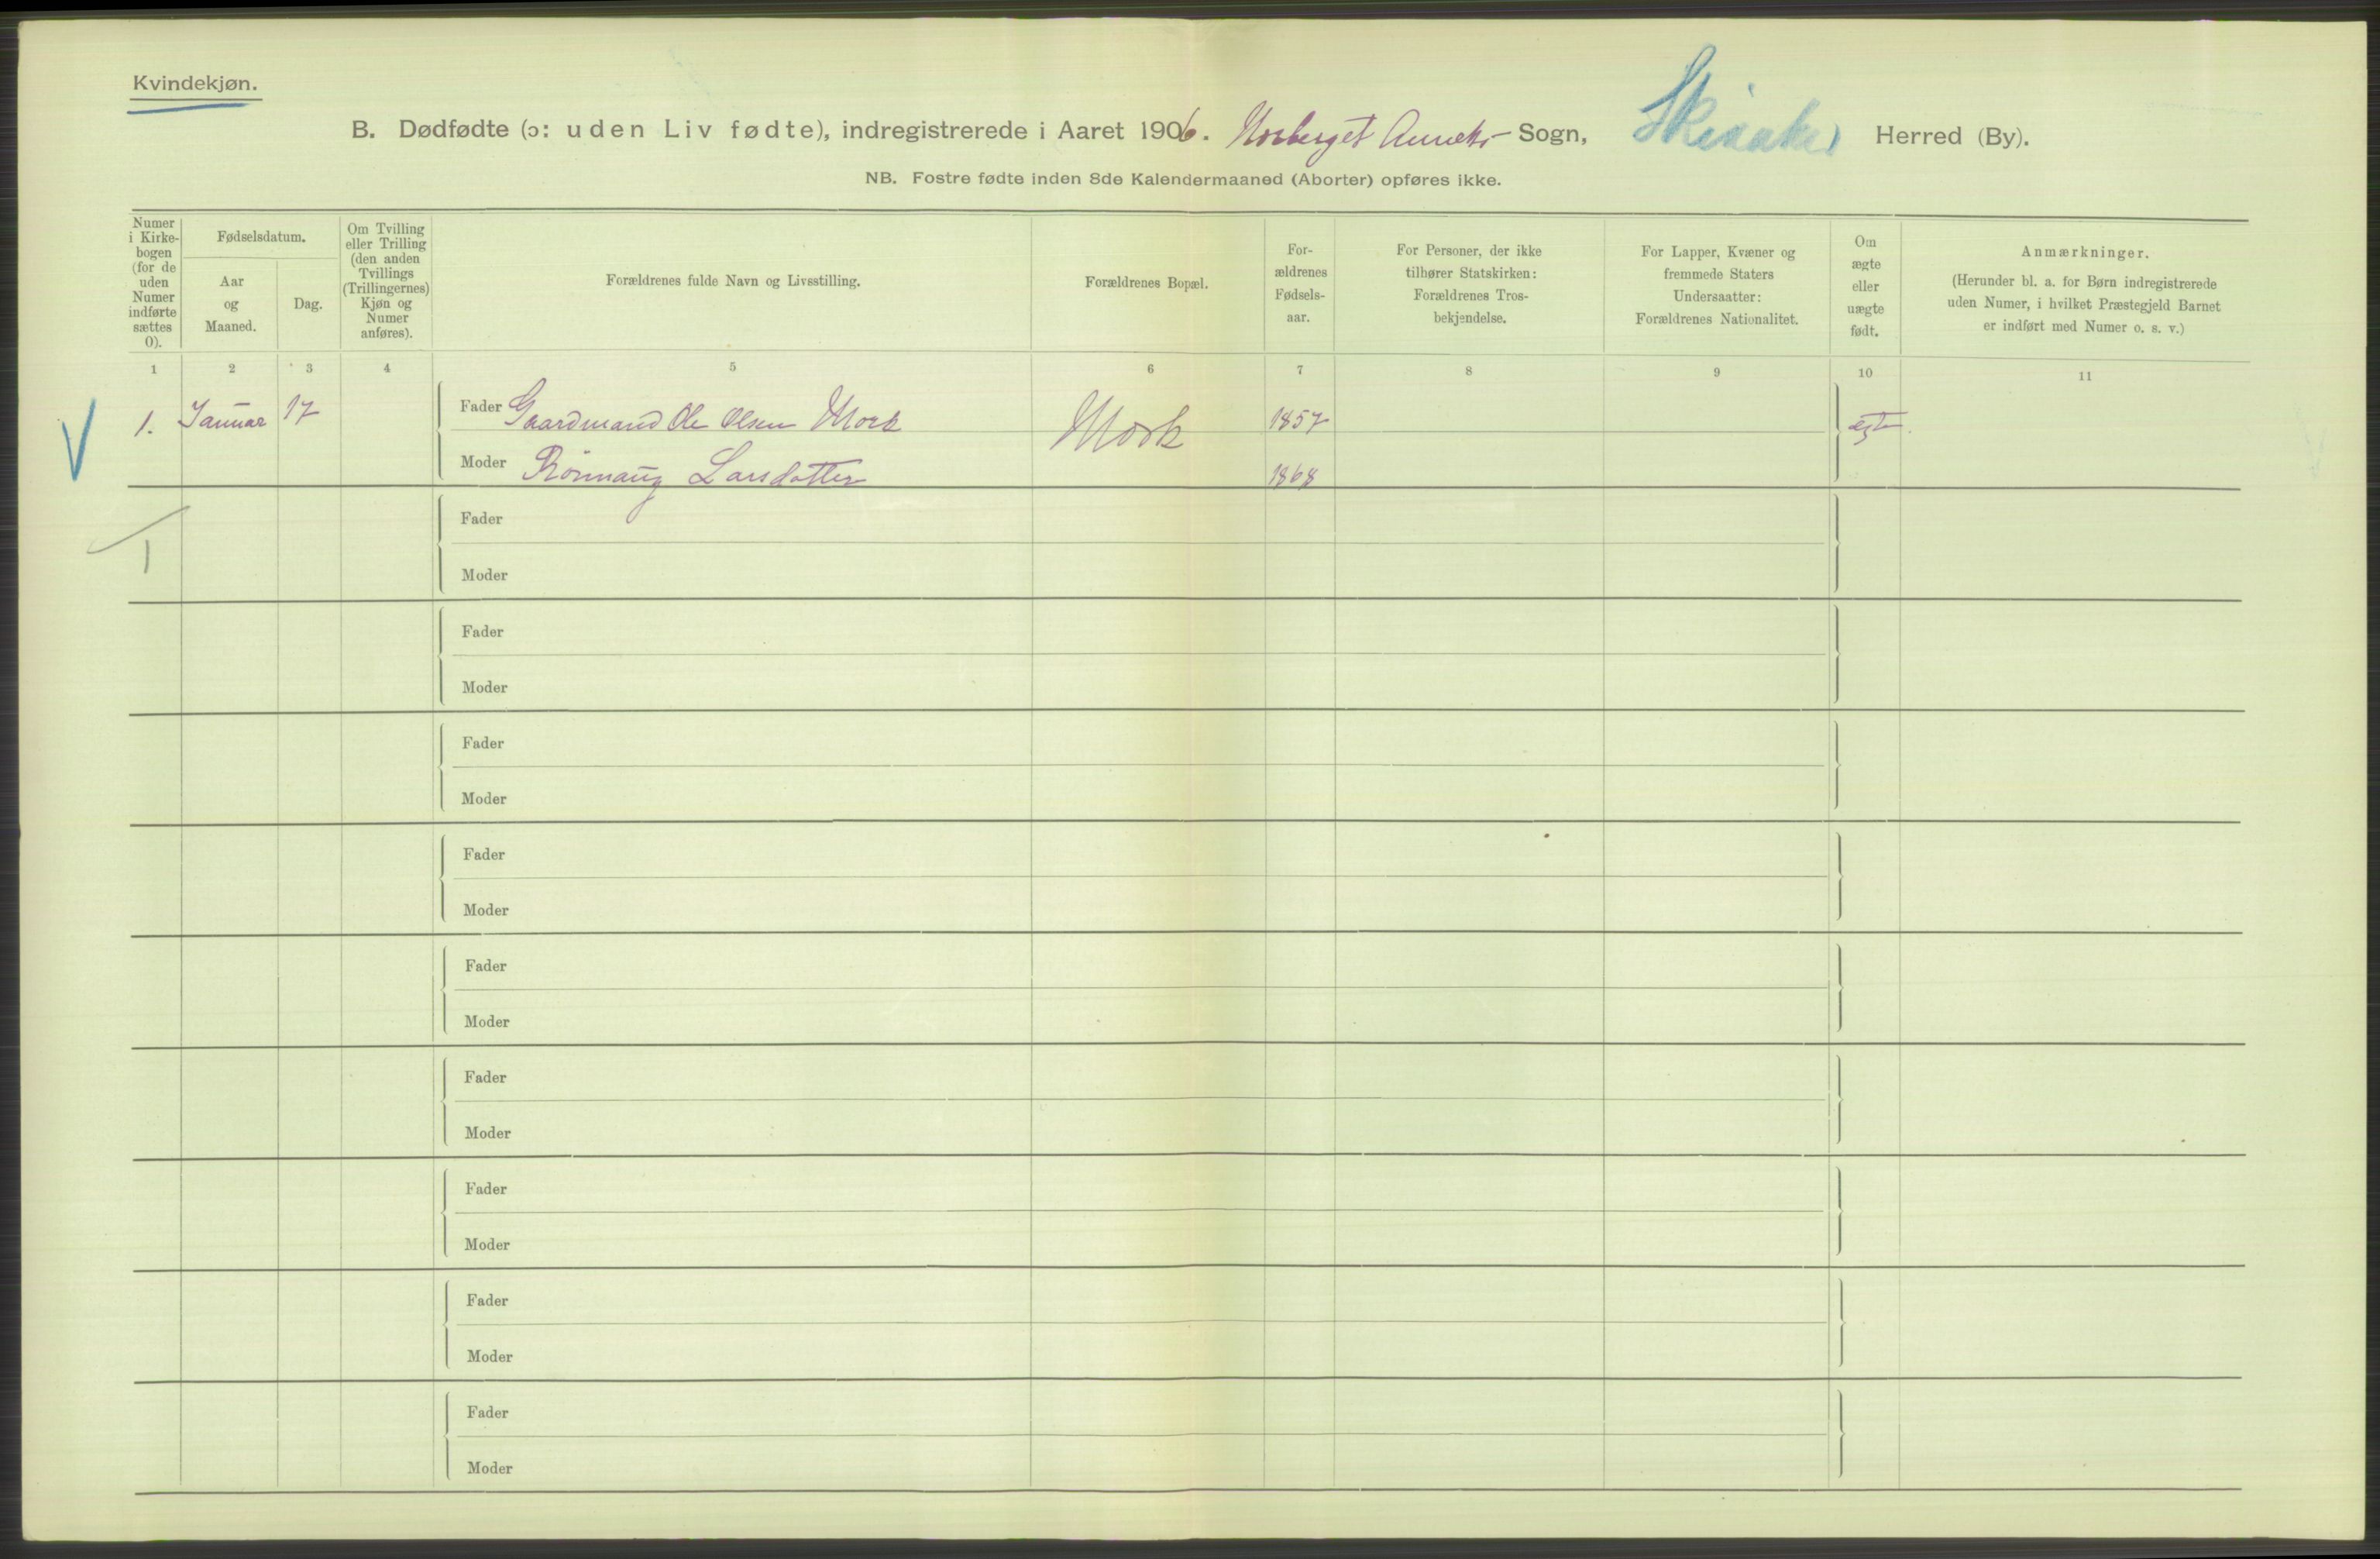 Kvindekjøn.
B. Dødfødte (ɔ: uden Liv fødte), indregistrerede i Aaret 1906. Norberget Anneks- Sogn, Skiaker Herred (By).
NB. Fostre fødte inden 8de Kalendermaaned (Aborter) opføres ikke.
Numer
i Kirke-
bogen
(for de
uden
Numer
indførte
sættes
0).
Fødselsdatum.
Aar
og
Maaned.
Dag.
Om Tvilling
eller Trilling
(den anden
Tvillings
(Trillingernes)
Kjøn og
Numer
anføres).
Forældrenes fulde Navn og Livsstilling.
Forældrenes Bopæl.
For-
ældrenes
Fødsels-
aar.
For Personer, der ikke
tilhører Statskirken:
Forældrenes Tros-
bekjendelse.
For Lapper, Kvæner og
fremmede Staters
Undersaatter:
Forældrenes Nationalitet.
Om
ægte
eller
uægte
født.
Anmærkninger.
(Herunder bl. a. for Børn indregistrerede
uden Numer, i hvilket Præstegjeld Barnet
er indført med Numer o. s. v.)
1 2 3 4 5 6 7 8 9 10 11
1. Januar 17 Fader Gaardmand Ole Olsen Mork Mork 1857 ægte.
Moder Rönnaug Larsdatter 1868
Fader
1
Moder
Fader
Moder
Fader
Moder
Fader
Moder
Fader
Moder
Fader
Moder
Fader
Moder
Fader
Moder
Fader
Moder